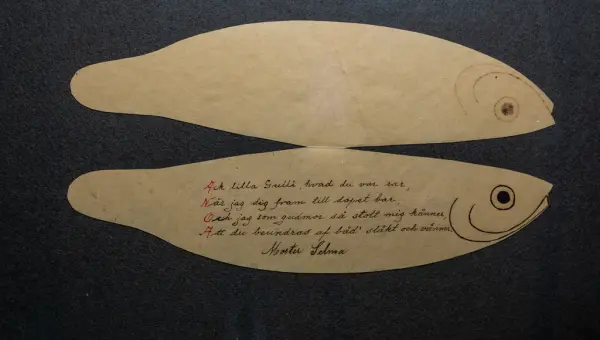 Ack lilla Gullè hvad du var rar,
När jag dig fram till dopet bar.
Och jag som gudmor så stolt mig känner,
Att du beundras af båd' släkt och vänner.
Moster Selma